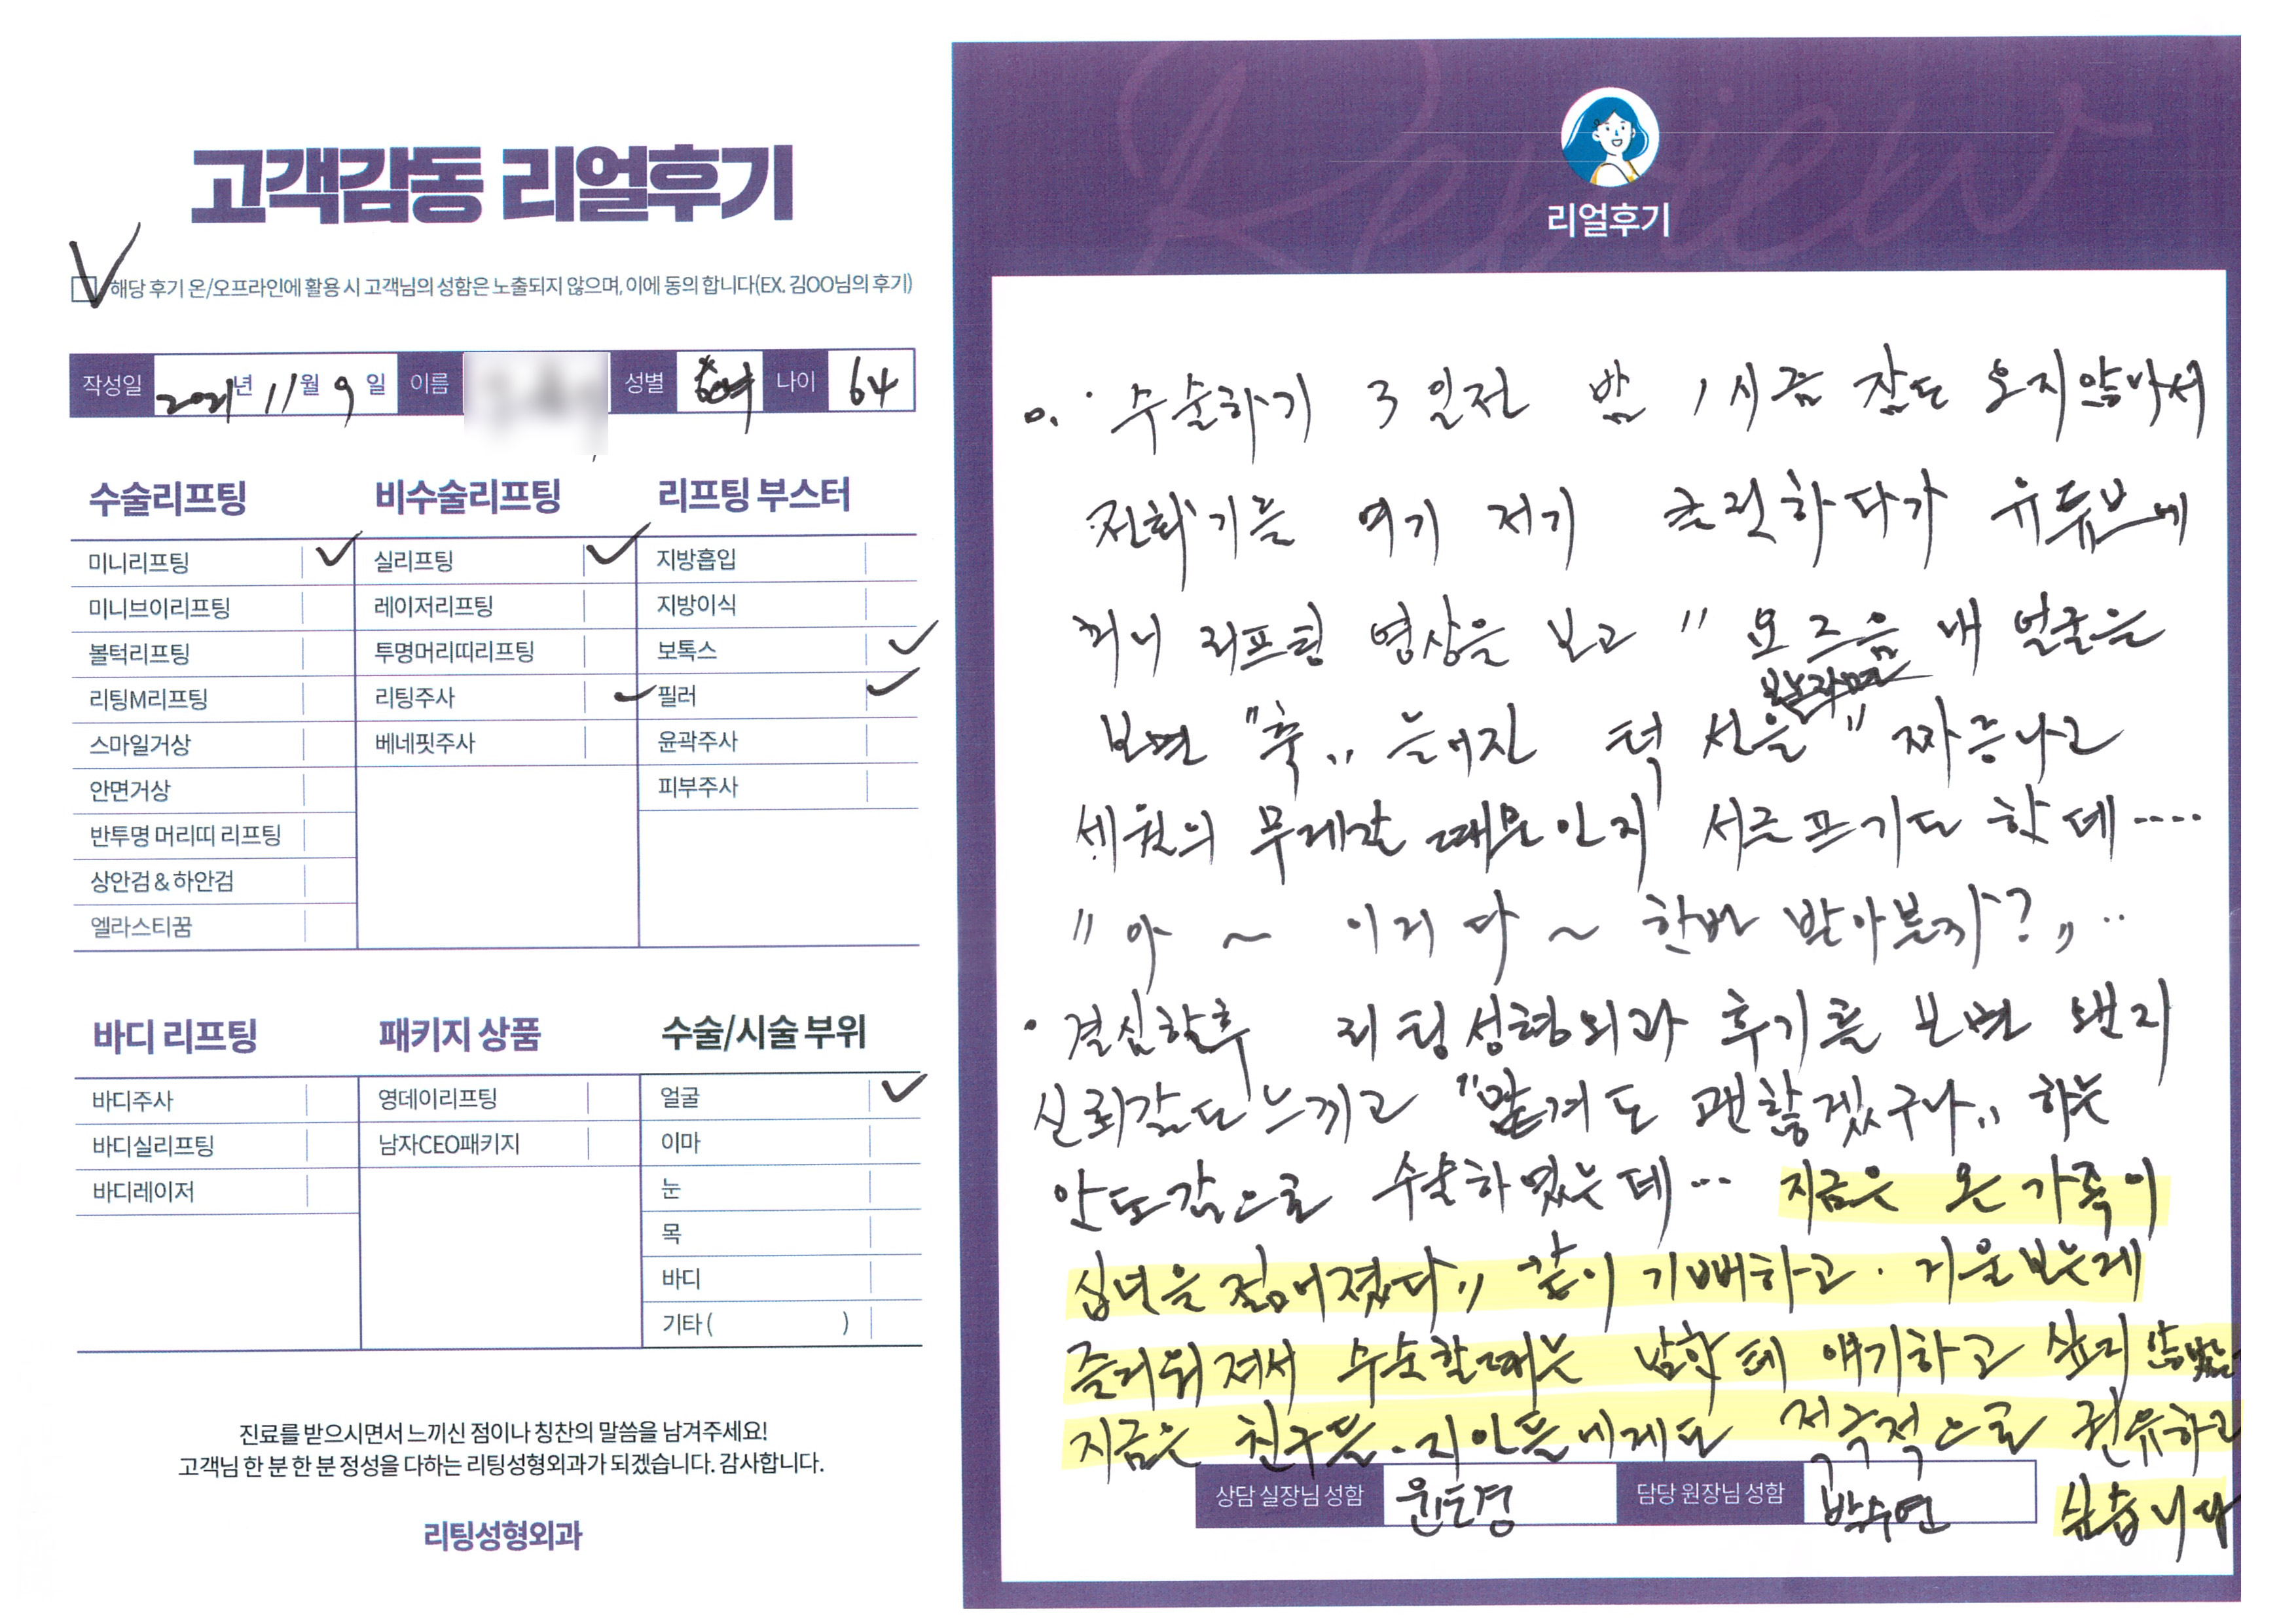 고객감동 리얼후기
해당 후기 온/오프라인에 활용 시 고객님의 성함은 노출되지 않으며, 이에 동의 합니다(EX. 김OO님의 후기)
작성일 2021년 11월 9일 이름 성별 여 나이 64
수술리프팅
미니리프팅
미니브이리프팅
볼턱리프팅
리팅M리프팅
스마일거상
안면거상
반투명 머리띠 리프팅
상안검 & 하안검
엘라스티꿈
비수술리프팅
실리프팅
레이저리프팅
투명머리띠리프팅
리팅주사
베네핏주사
리프팅 부스터
지방흡입
지방이식
보톡스
필러
윤곽주사
피부주사
바디 리프팅
바디주사
바디실리프팅
바디레이저
패키지 상품
영데이리프팅
남자CEO패키지
수술/시술 부위
얼굴
이마
눈
목
바디
기타 ( )
진료를 받으시면서 느끼신 점이나 칭찬의 말씀을 남겨주세요!
고객님 한 분 한 분 정성을 다하는 리팅성형외과가 되겠습니다. 감사합니다.
리팅성형외과
Review
리얼후기
수술하기 3일전 밤 1시쯤 잠도 오지않아서
전화기를 여기 저기 클릭하다가 유튜브에
미니 리프팅 영상을 보고 " 요즈음 내 얼굴을
보면 "축" 늘어진 턱 선을" 짜증나고
세월의 무게감 때문인지 서글프기도 한데....
"아 ~ 이거다 ~ 한번 받아볼까?"..
• 결심한후 리팅성형외과 후기를 보면 왠지
신뢰감도 느끼고 "맡겨도 괜찮겠구나" 하는
안도감으로 수술하였는데... 지금은 온 가족이
십년은 젊어졌다" 같이 기뻐하고. 거울보는게
즐거워져서 수술할때는 남한테 얘기하고 싶지 않았는데
지금은 친구들.지인들에게도 적극적으로 권유하고
싶습니다
상담 실장님 성함 담당 원장님 성함 박수연